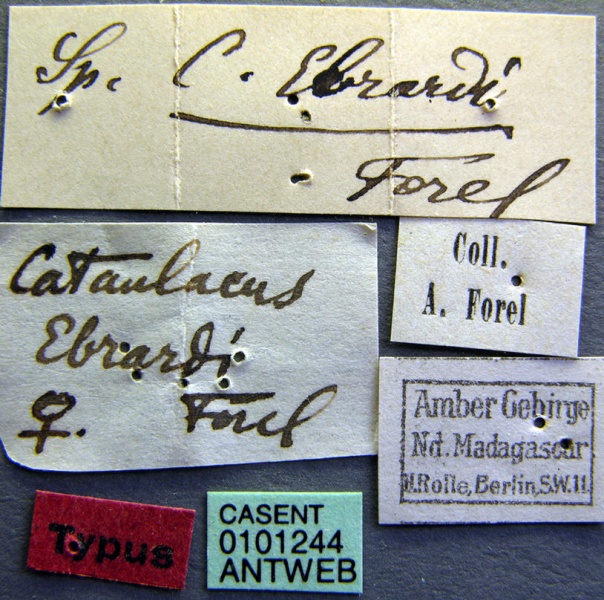 Sp. C. Ebrardi
Forel
Cataulacus
Ebrardi
♀. Forel
Coll.
A. Forel
Amber Gebirge
Nd. Madagascar
H.Rolle, Berlin, S.W.11.
Typus
CASENT
0101244
ANTWEB